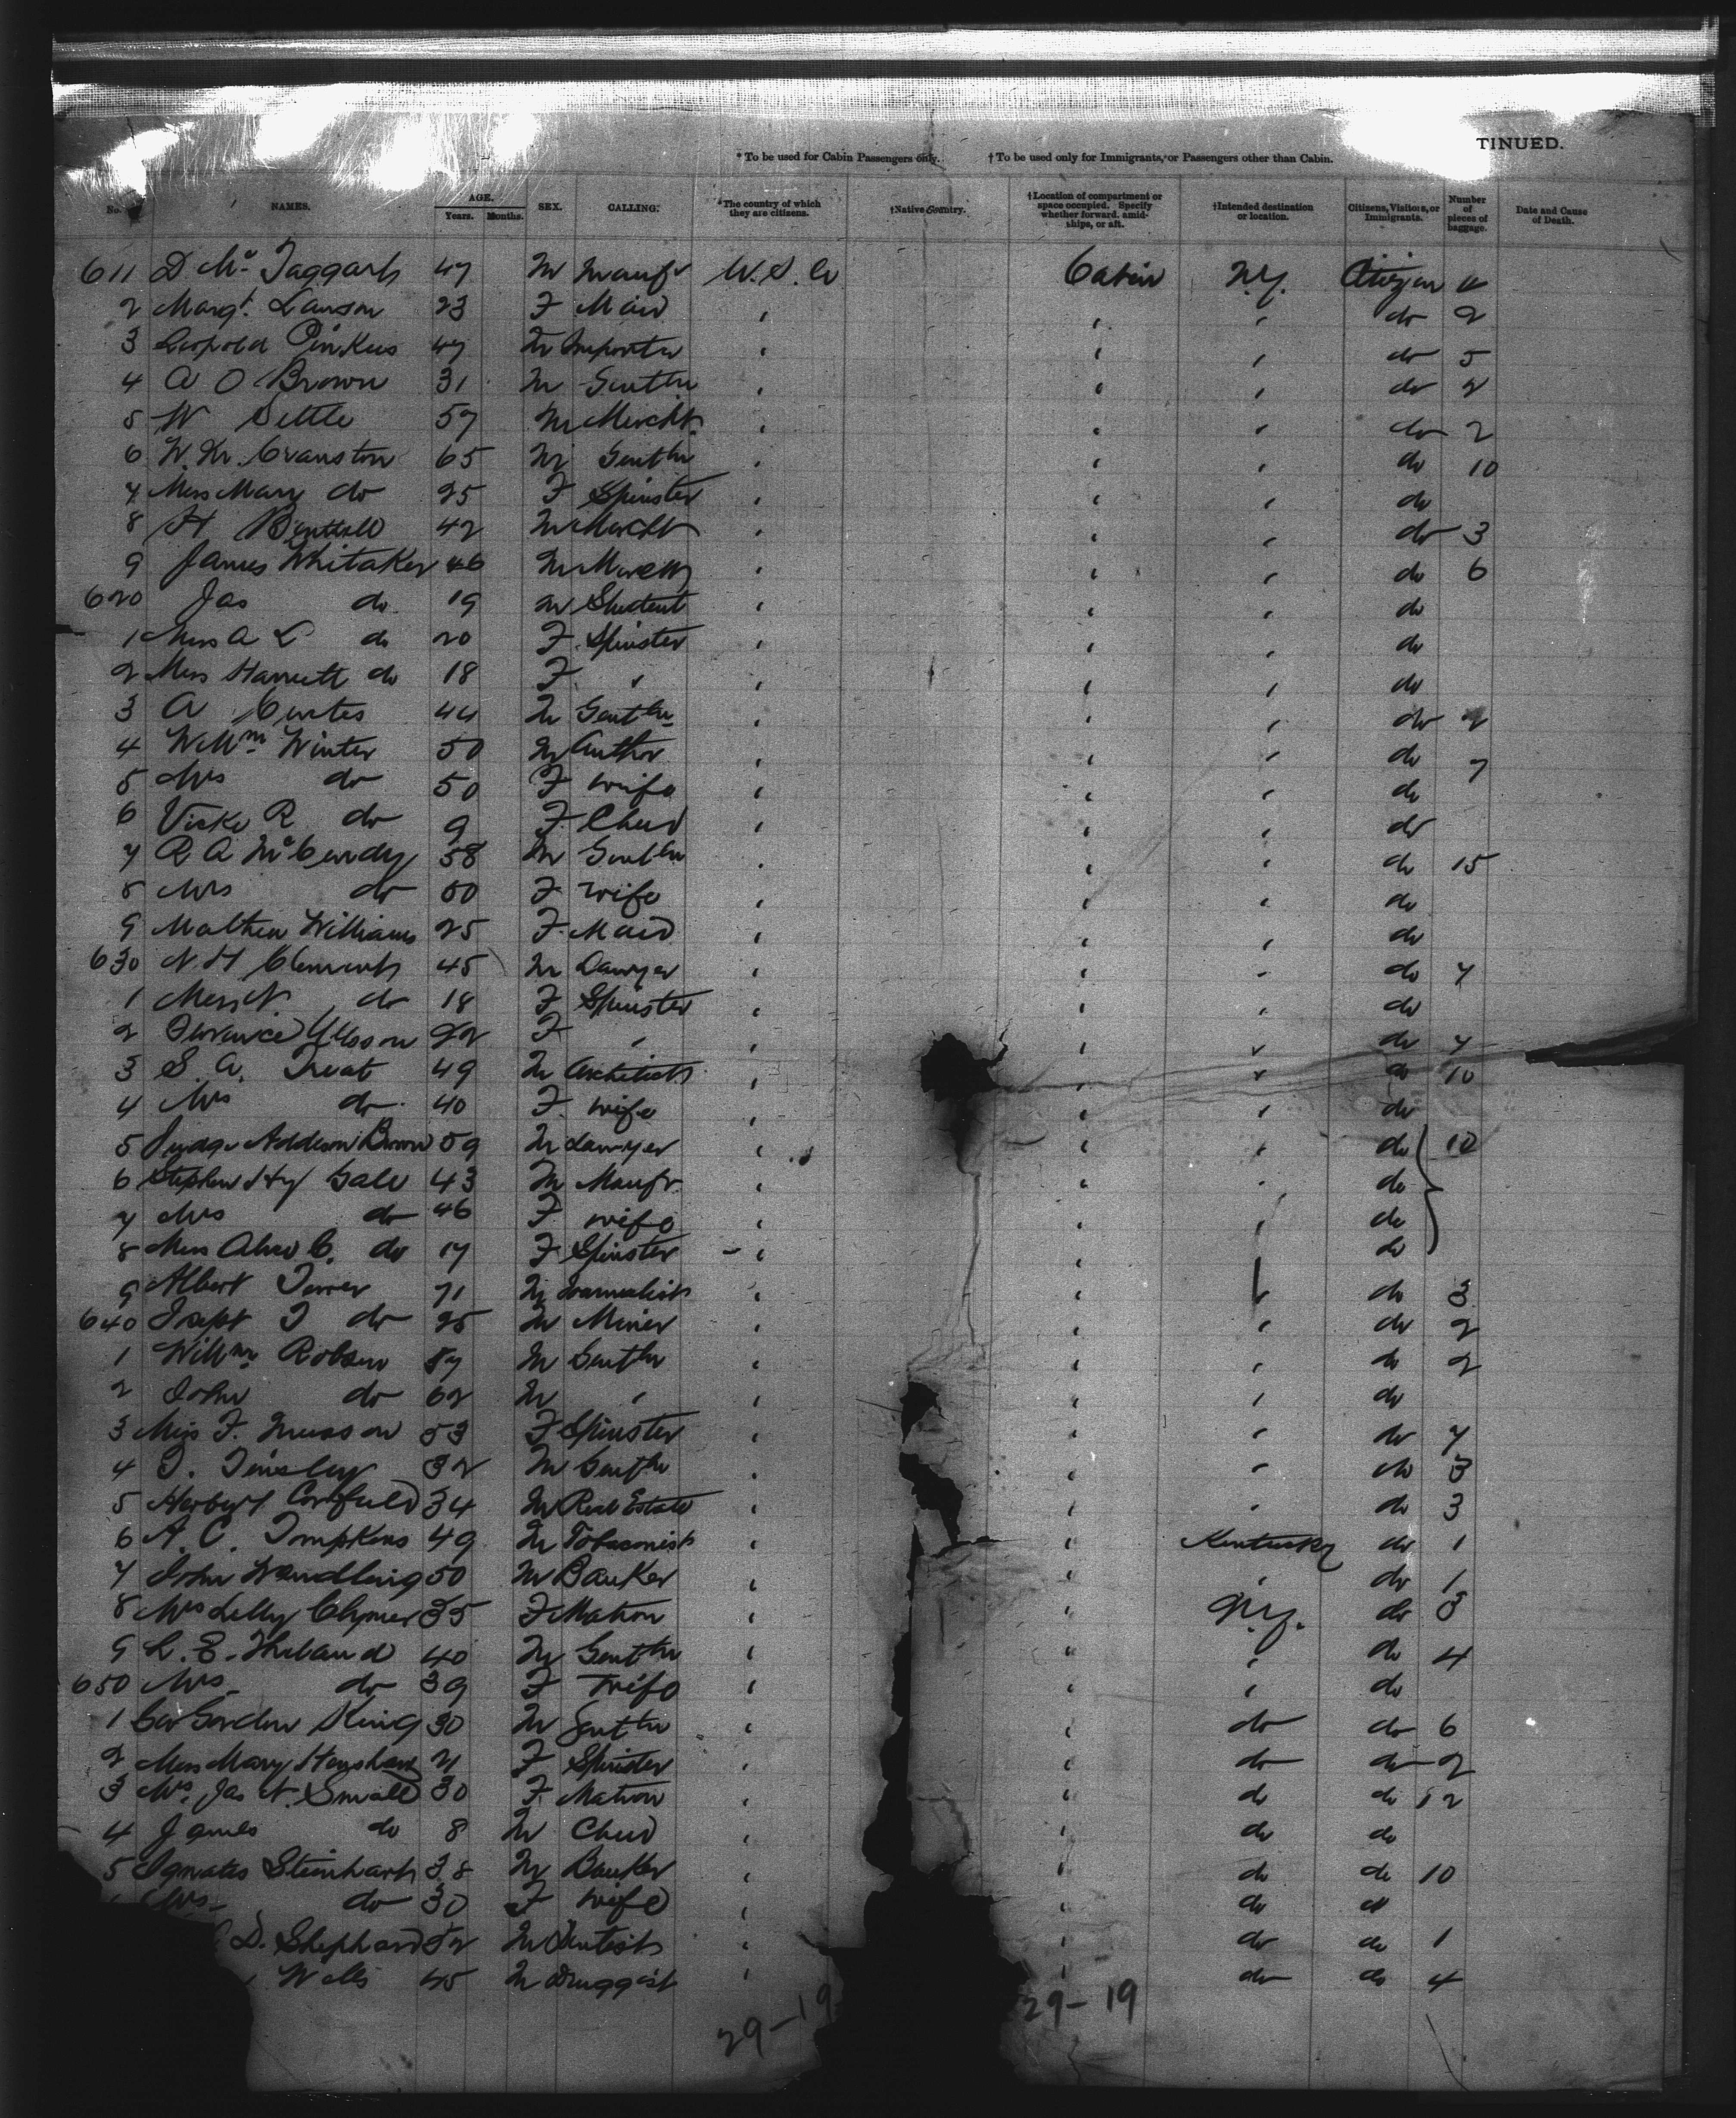 TINUED.
* To be used for Cabin Passengers only. † To be used only for Immigrants, or Passengers other than Cabin.
No. NAMES. AGE. Years. Months. SEX. CALLING. *The country of which they are citizens. †Native Country. †Location of compartment or space occupied. Specify whether forward, amidships, or aft. †Intended destination or location. Citizens, Visitors, or Immigrants. Number of pieces of baggage. Date and Cause of Death.
611 D Mc Taggart 47 M Manufr U.S. A Cabin N.Y. Citizen
2 Margt. Lawson 23 F Maid do 2
3 Leopold Pinkus 47 M Importer do 5
4 A O Brown 31 M Gentln do 2
5 W Settle 57 M Mercht do 2
6 W. Hr. Cranston 65 M Gentln do 10
7 Miss Mary do 25 F Spinster do
8 H 42 M Mercht do 3
9 James Whitaker 46 M do 6
620 Jas do 19 M Student do
1 Miss A L do 20 F Spinster do
2 Miss Harriett do 18 F " do
3 A Curtes 44 M Gentln do 2
4 Willm Winter 50 M Author do 7
5 Mrs do 50 F wife do
6 R do 9 F Child do
7 R A McCurdy 58 M Gentln do 15
8 Mrs do 50 F wife do
9 Williams 25 F Maid do
630 N H Clements 45 M Lawyer do 7
1 Miss N. do 18 F Spinster do
2 22 F " do 7
3 S. A. Treat 49 M Architect do 10
4 Mrs do 40 F wife do
5 Judge Addison Brown 59 M Lawyer do 10
6 Stephen Hy Gale 43 M Manfr. do
7 Mrs do 46 F wife do
8 Miss Alice C. do 17 F Spinster do
9 Albert 71 M Journalist do 3
640 T do 25 M Miner do 2
1 Willm Robson 57 M Gentln do 2
2 John do 62 M " do
3 Miss F. Musson 53 F Spinster do 7
4 T. Tinsley 32 M Gentln do 3
5 Herbert Cornfield 34 M Real Estate do 3
6 A. C. Tompkins 49 M Tobaconist Kentucky do 1
7 John Wendling 50 M Banker do 1
8 Mrs Lilly Clymer 35 F Matron N.Y. do 3
9 L. E. 40 M Gentln do 4
650 Mrs do 39 F Wife do
1 Geo Gordon King 30 M Gentln do do 6
2 Miss Mary Henshaw 21 F Spinster do do 2
3 Mrs. Jas N. Small 30 F Matron do do 12
4 James do 8 M Child do do
5 Ignates Steinhart 38 M Banker do do 10
Mrs do 30 F Wife do
D. Shephard 52 M Dentist do do 1
Wells 45 M Druggist do do 4
29-19 29-19